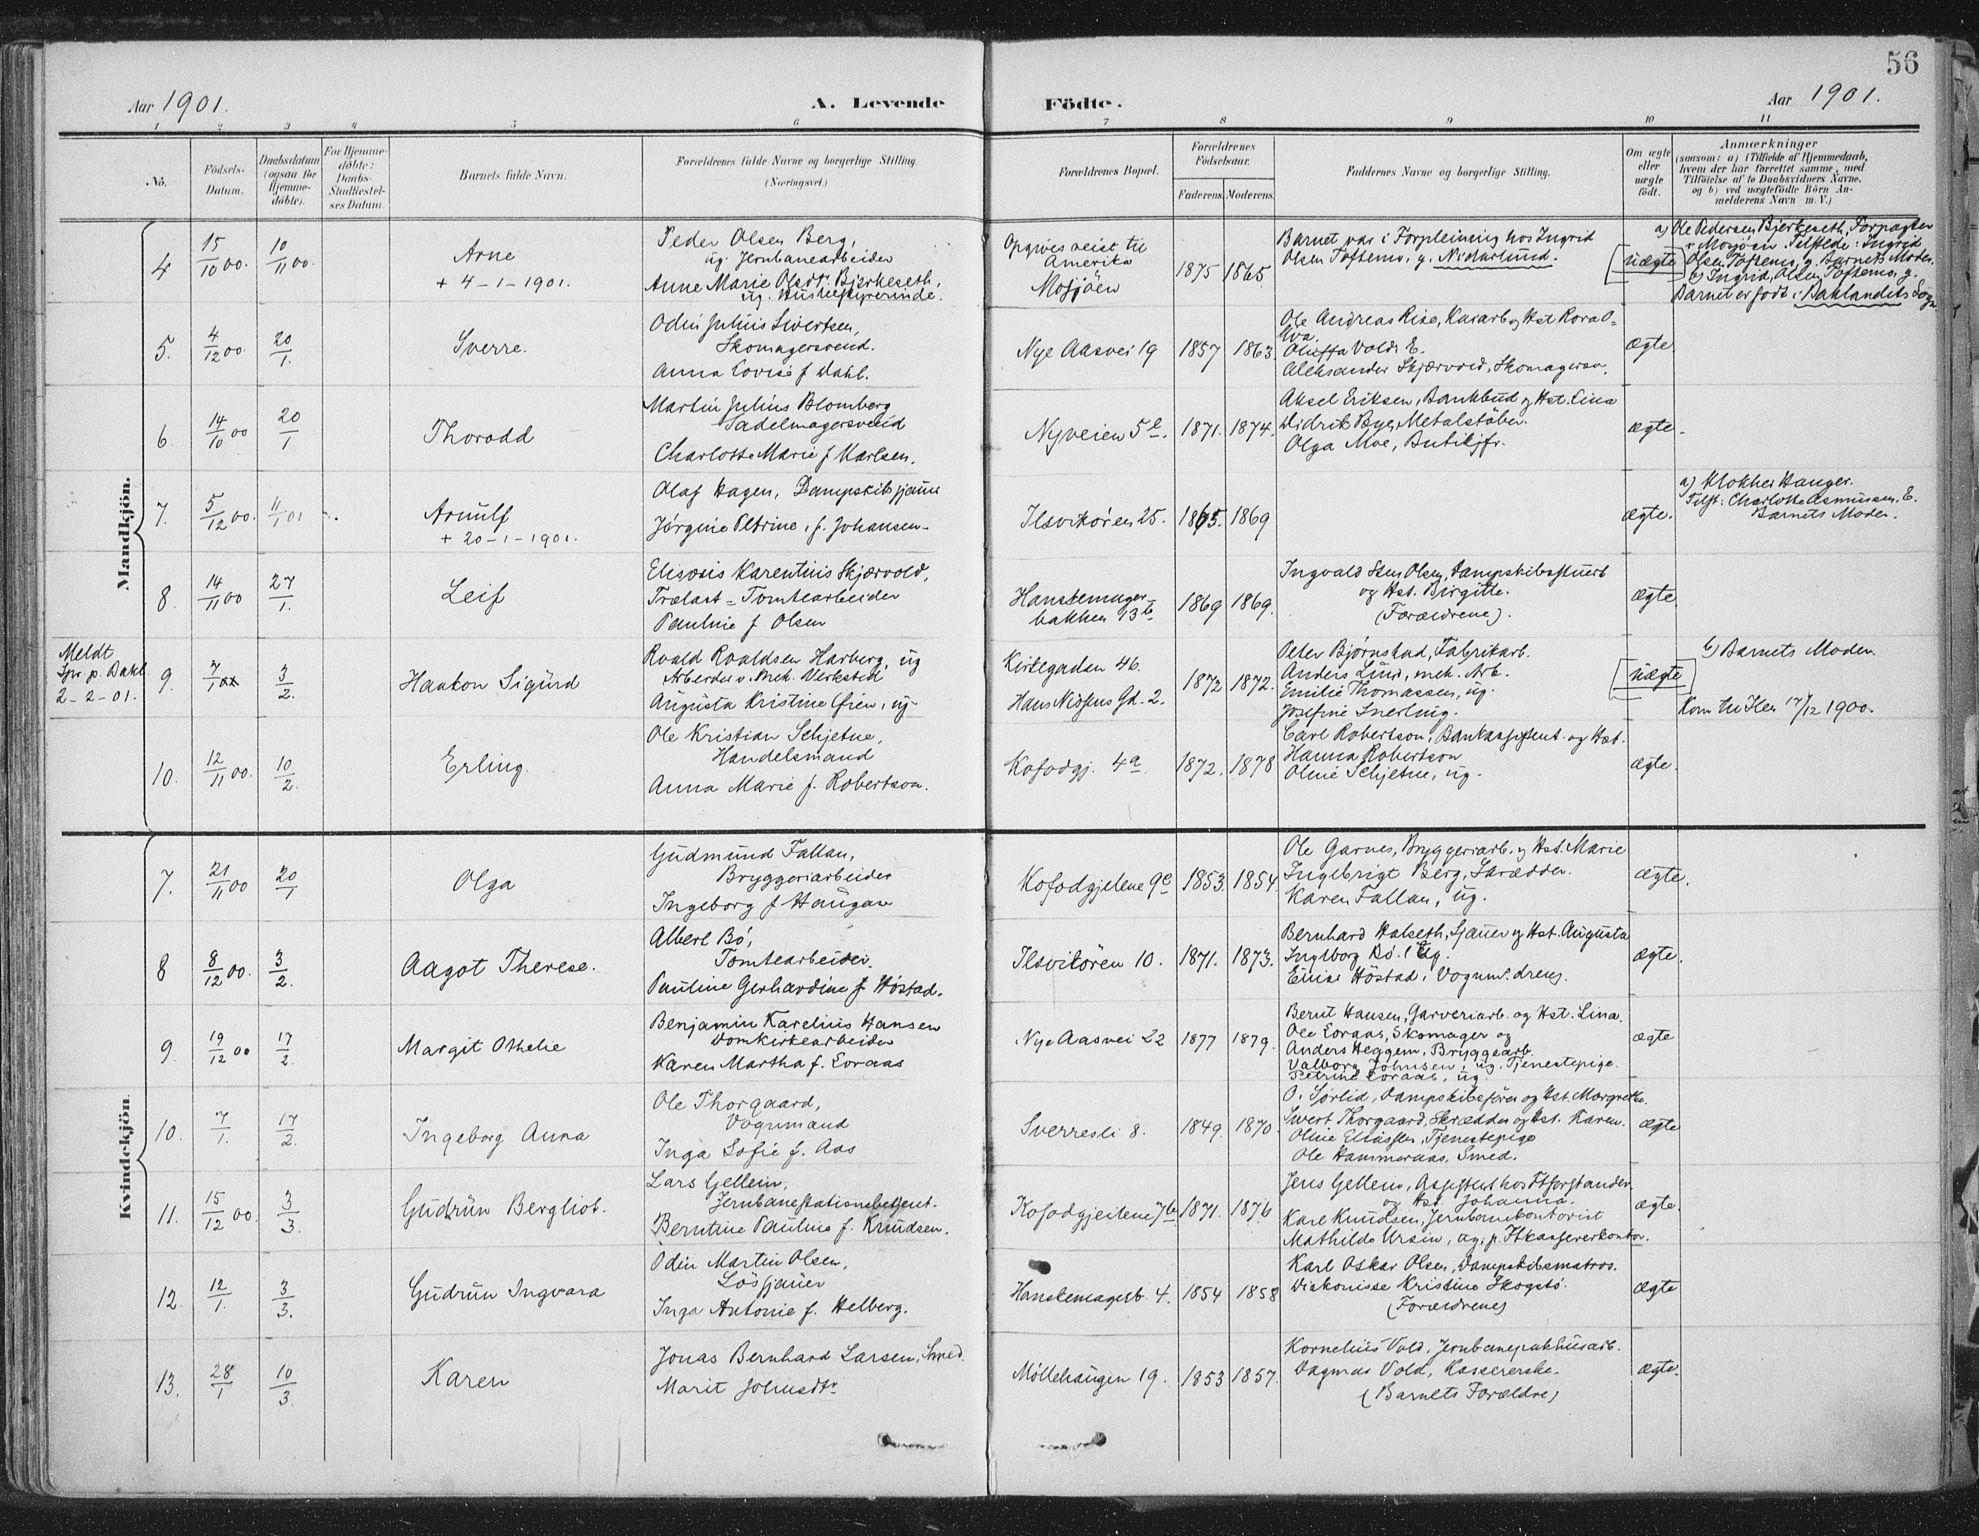 56
Aar 1901.
A. Levende
Födte.
Aar 1901.
1 2 3 4 5 6 7 8 9 10 11
No.
Födsels-Datum.
Daabsdatum (ogsaa for Hjemme-döbte).
For Hjemme-döbte: Daabs-Stadfæstel-ses Datum.
Barnets fulde Navn.
Forældrenes fulde Navne og borgerlige Stilling.
(Næringsvei.)
Forældrenes Bopæl.
Forældrenes Födselsaar.
Faderens. Moderens.
Faddernes Navne og borgerlige Stilling.
Om ægte eller uægte födt.
Anmærkninger
(saasom: a) i Tilfælde af Hjemmedaab,
hvem der har forrettet samme, med
Tilföielse af to Daabsvidners Navne,
og b) ved uægtefödte Börn An-
melderens Navn m. V.)
Mandkjön.
4 15/10 00. 10/11 00. Arne
+ 4-1-1901.
Peder Olsen Berg,
ug. Jernbanearbeider
Anne Marie Olsdtr. Bjerkeseth,
ug. Husbestyrerinde.
Opgives reist til
Amerika
Mosjöen
1875 1865
Barnet var i Forpleining hos Ingrid
Olsen Toftemo, g. Nidarlund.
uægte
a) Ole Pedersen Bjerkeseth, Forpagter
i Mosjöen. Tilstede: Ingrid
Olsen Toftemo, g. Barnets Moder.
b) Ingrid Olsen Toftemo, g.
Barnet er født i Baklandets Sogn
5. 4/12 00 20/1. Sverre.
Odin Julius Sivertsen,
Skomagersvend.
Anna Lovise f. Dahl.
Nye Aasvei 19 1857 1863.
Ole Andreas Rise, Kaiarb og Hst Kora O-
Oluffa Vold, E.
Aleksander Skjærvold, Skomagersv.
ægte
6. 14/10 00 20/1 Thorodd
Martin Julius Blomberg
Sadelmagersvend
Charlotte Marie f Karlsen.
Nyveien 5e. 1871. 1874.
Aksel Eriksen, Bankbud og Hst. Lina
Didrik Bye, Metalstøber.
Olga Moe, Butikjfr.
ægte.
7. 5/12 00. 11/1 01 Arnulf
+ 20-1-1901.
Olaf Hagen, Dampskibssjauer
Jørgine Petrine, f. Johansen
Ilsvikören 25. 1865. 1869
ægte.
a) Klokker Hanger.
Tilst: Charlotte Asmussen, E.
Barnets Moder.
8. 14/11 00 27/1. Leif
Elisæus Karentius Skjærvold,
Trælast-Tomtearbeider
Pauline f Olsen
Hanskemager-
bakken 13b 1869 1869.
Ingvald Sten Olsen, Dampskibsstuert
og Hst. Birgitte.
(Forældrene).
ægte
Meldt
Spr. p. Dahl
2-2-01.
9. 7/1 3/2. Haakon Sigurd
Roald Roaldsen Harberg, ug
Arbeider v. Mek. Verksted
Augusta Kristine Øien, ug
Kirkegaden 46.
Hans Nissens Gd. 2. 1872 1872.
Peter Bjørnstad, Fabrikarb.
Anders Lund, mek. Arb.
Emilie Thomassen, ug.
Josefine Snerting.
uægte
b) Barnets Moder.
Kom til Ilen 17/12 1900.
10. 12/11 00. 10/2. Erling.
Ole Kristian Schjetne,
Handelsmand
Anna Marie f. Robertson.
Kofodgj. 4a. 1872. 1878
Carl Robertson, Bankassistent. og Hst.
Hanna Robertson
Oline Schjetne, ug.
ægte.
Kvindekjön.
7. 21/11 00 20/1 Olga
Gudmund Fallan,
Bryggeriarbeider
Ingeborg f Haugan
Kofodgjeilene 9c 1853. 1854.
Ole Garnes, Bryggeriarb. og Hst. Marie
Ingebrigt Berg, Skrædder.
Karen Fallan, ug.
ægte.
8 8/12 00. 3/2. Aagot Therese.
Albert Bö,
Tomtearbeider.
Pauline Gerhardine f Höstad.
Ilsvikören 10. 1871. 1873.
Bernhard Halseth, Sjauer og Hst. Augusta
Ingeborg Bö. Ug.
Elise Höstad, Vognm. dreng.
ægte.
9. 19/12 00 17/2. Margit Othelie
Benjamin Karelius Hansen
Domkirkearbeider
Karen Martha f. Loraas
Nye Aasvei 22 1877 1879.
Bernt Hansen, Garveriarb. og Hst. Lina.
Ole Loraas, Skomager og
Anders Heggem, Bryggearb.
Valborg Johnsen, ug. Tjenestepige.
Petrine Loraas, ug.
ægte
10. 7/1. 17/2. Ingeborg Anna
Ole Thorgaard,
Vognmand
Inga Sofie f. Aas
Sverresli 8. 1849. 1870.
O. Sørlid, Dampskibsfører og Hst. Margrethe.
Sivert Thorgaard, Skrædder og Hst. Karen.
Oline Eliassen, Tjenestepige
Ole Hammeraas, Smed.
ægte
11. 15/12 00. 3/3. Gudrun Bergliot.
Lars Gellein,
Jernbanestationsbetjent.
Berntine Pauline f. Knudsen.
Kofodgjeilene 7b 1871. 1876
Jens Gellein, Assistent hos Ftforstander
og Hst. Johanna.
Karl Knudsen, Jernbanekontorist
Mathilde Ursin, ug. p. Ftkassererkontor.
ægte.
12. 12/1. 3/3. Gudrun Ingvara
Odin Martin Olsen,
Løssjauer
Inga Antonie f. Helberg.
Hanskemagerb. 4. 1854 1858
Karl Oskar Olsen, Dampskibsmatros.
Diakonisse Kristine Skogstø.
(Forældrene)
ægte
13. 28/1 10/3 Karen
Jonas Bernhard Larsen, Smed.
Marit Johnsdtr
Möllehaugen 19. 1853 1857.
Kornelius Vold, Jernbanepakhusarb.
Dagmar Vold, Kassererske.
(Barnets Forældre)
ægte.